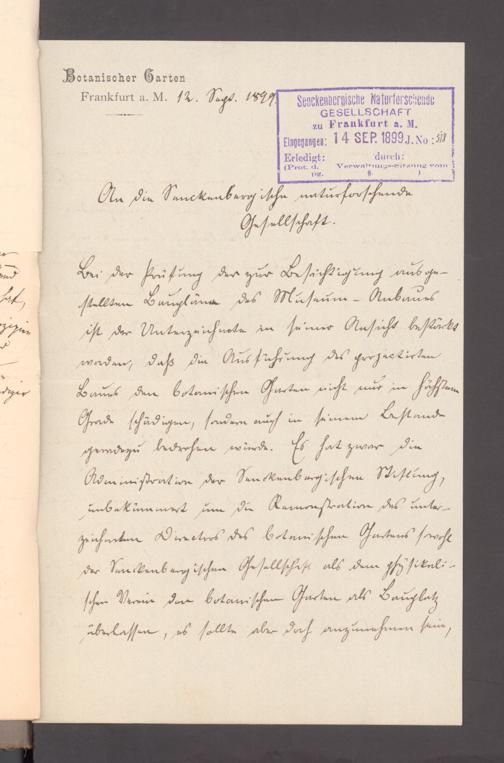 Botanischer Garten
Frankfurt a. M. 12. Sept. 1899.
Senckenbergische Naturforschende
GESELLSCHAFT
zu Frankfurt a. M.
Eingegangen: 14 SEP. 1899 J. No:
Erledigt: durch:
(Prot. d. Verwaltungssitzung vom
pg. §. )
An die Senckenbergische naturforschende
Gesellschaft.
Bei der Prüfung der zur Besichtigung ausge-
stellten Baupläne des Museum-Anbaues
ist der Unterzeichnete in seiner Ansicht bestärkt
worden, daß die Ausführung des projectirten
Baues den botanischen Garten nicht nur in höchstem
Grade schädigen, sondern auch in seinem Bestande
geradezu bedrohen würde. Es hat zwar die
Administration der Senckenbergischen Stiftung,
unbekümmert um die Remonstration des unter-
zeichneten Directors des botanischen Gartens sowohl
der Senckenbergischen Gesellschaft als dem physikali-
schen Verein den botanischen Garten als Bauplatz
überlassen, es sollte aber doch anzunehmen sein,